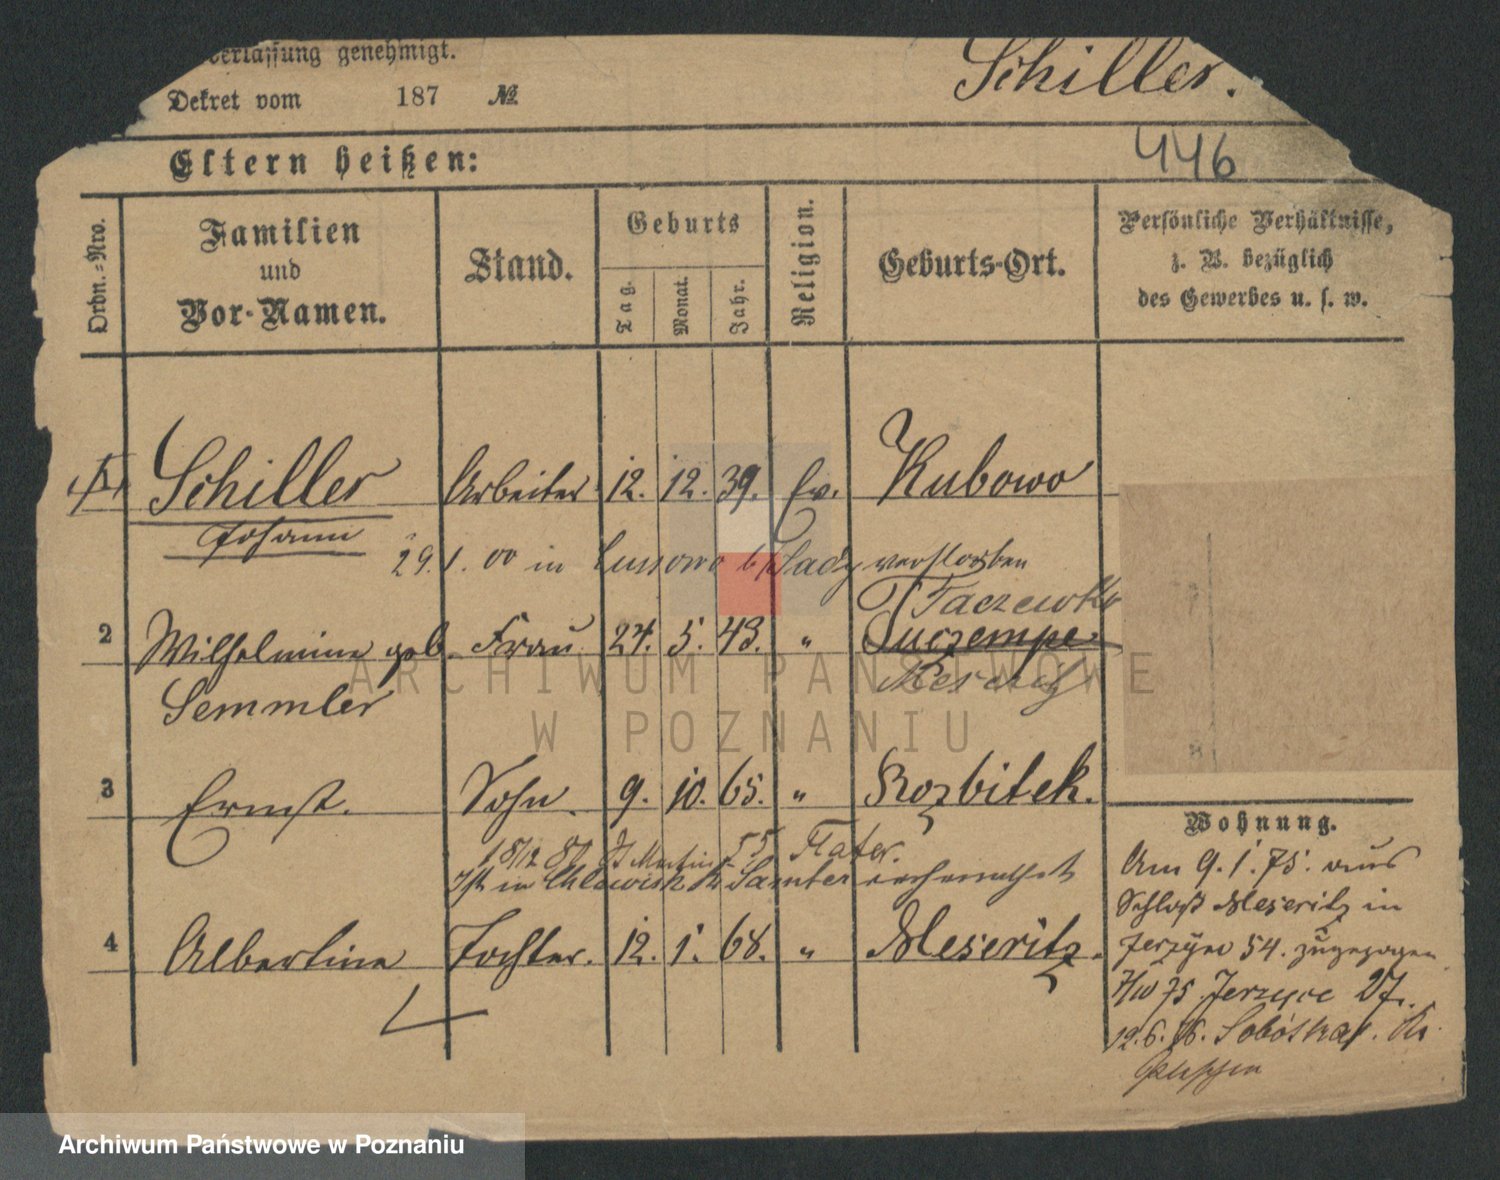 erlassung genehmigt.
Dekret vom 187 №
Schiller.
446
Eltern heißen:
Ordn.=Nro.
Familien
und
Vor-Namen.
Stand.
Geburts
Tag.
Monat.
Jahr.
Religion.
Geburts-Ort.
Persönliche Verhältnisse,
z. B. bezüglich
des Gewerbes u. s. w.
Schiller Arbeiter 12. 12. 39. Ev. Kubowo
Johann
29.1.00 in Lussowo b/Sady verstorben
Taczewko
2 Wilhelmine geb. Frau 24. 5. 43. " Suczempe
Semmler
Meseritz
3 Ernst. Sohn. 9. 10. 65. " Rozbitek.
18/12 St Martin 55 Vater.
Ist in Samter
4 Albertine Tochter. 12. 1. 68. " Meseritz.
Wohnung.
Am 9. 1. 75. aus
Schloß Meseritz in
Jerzyce 54. zugezogen
75 Jerzyce 27.
12.6.76. Kr.
Pleschen
ARCHIWUM PAŃSTWOWE
W POZNANIU
Archiwum Państwowe w Poznaniu